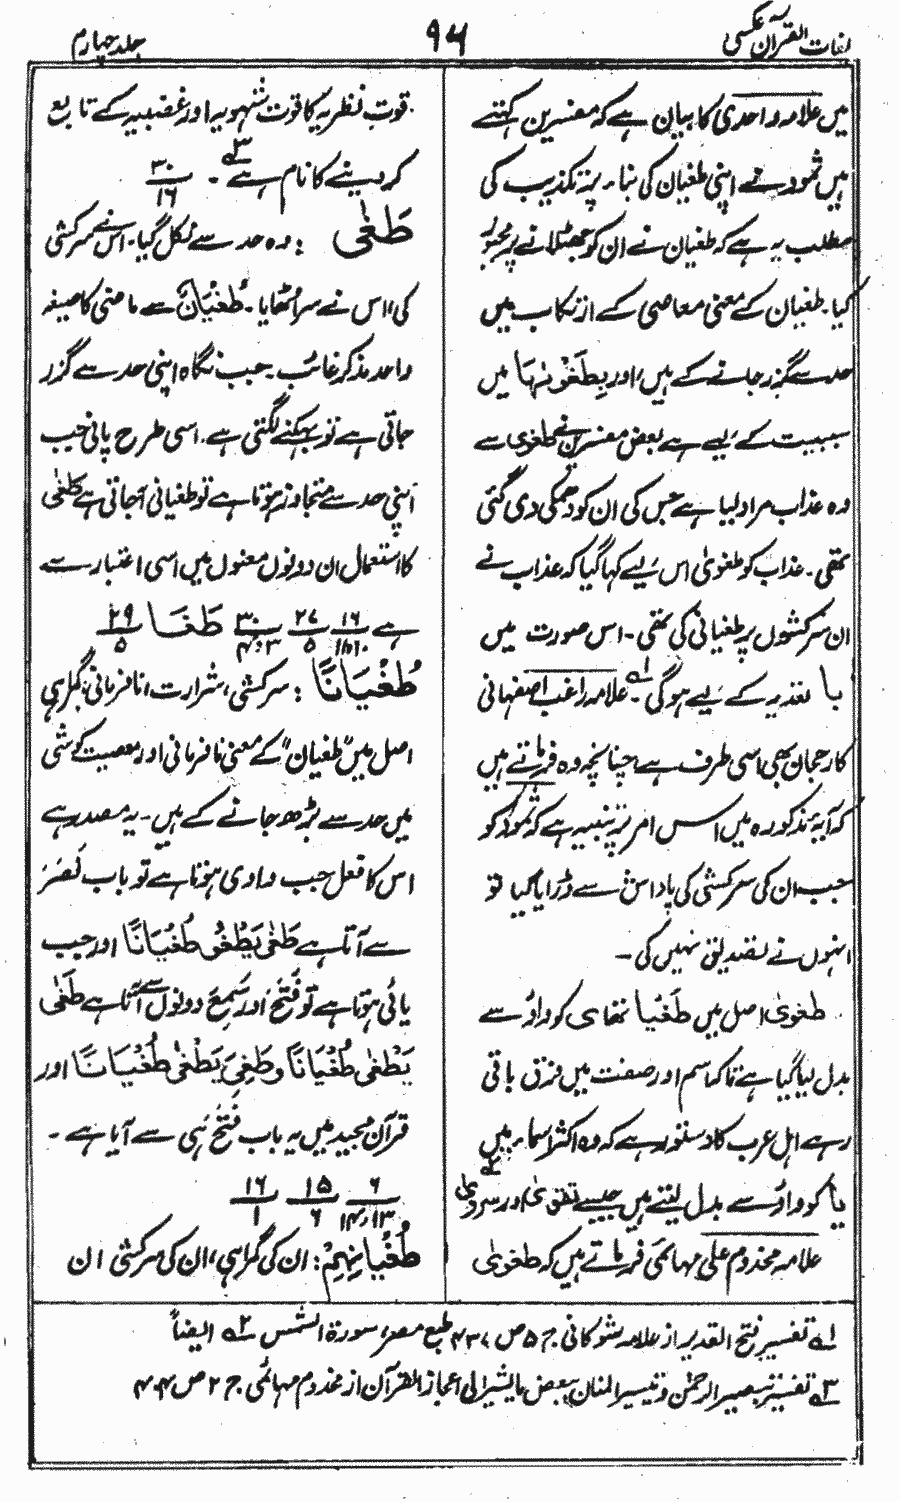 لغات القرآن عکسی
۹۴
جلد چہارم
میں علامہ واحدی کا بیان ہے کہ مفسرین کہتے
ہیں ثمود نے اپنی طغیان کی بنا پر تکذیب کی
مطلب یہ ہے کہ طغیان نے ان کو جھٹلانے پر مجبور
کیا۔ طغیان کے معنی معاصی کے ارتکاب میں
حد سے گزر جانے کے ہیں، اور بِطَغْوٰىہَا میں
سببیت کے لیے ہے بعض مفسرین نے طغویٰ سے
وہ عذاب مراد لیا ہے جس کی ان کو دھمکی دی گئی
تھی۔ عذاب کو طغویٰ اس لیے کہا گیا کہ عذاب نے
ان سرکشوں پر طغیانی کی تھی۔ اس صورت میں
با تعدیہ کے لیے ہوگی۔ ۱ے علامہ راغب اصفہانی
کا رجحان بھی اسی طرف ہے، چنانچہ وہ فرماتے ہیں
کہ آیۂ مذکورہ میں اس امر پر تنبیہ ہے کہ ثمود کو
جب ان کی سرکشی کی پاداش سے ڈرایا گیا تو
انہوں نے تصدیق نہیں کی۔
طغویٰ اصل میں طَغْیَا تھا ی کو واؤ سے
بدل لیا گیا ہے تاکہ اسم اور صفت میں فرق باقی
رہے اہل عرب کا دستور ہے کہ وہ اکثر اسماء میں
یا کو واؤ سے بدل لیتے ہیں جیسے تقویٰ اور سروی ۲ے
علامہ مخدوم علی مہائمی فرماتے ہیں کہ طغویٰ
قوت نظریہ کا قوت شہویہ اور غضبیہ کے تابع
کر دینے کا نام ہے ۳ے۔ ۳۰/۱۶
طَغٰی : وہ حد سے نکل گیا۔ اس نے سرکشی
کی، اس نے سر اٹھایا۔ طُغْیَانٌ سے ماضی کا صیغہ
واحد مذکر غائب۔ جب نگاہ اپنی حد سے گزر
جاتی ہے تو بہکنے لگتی ہے۔ اسی طرح پانی جب
اپنی حد سے متجاوز ہوتا ہے تو طغیانی آجاتی ہے طَغٰی
کا استعمال ان دونوں معنوں میں اسی اعتبار سے
ہے ۱۶/۱۸،۱۰ ۲۷/۵ ۳۰/۳،۴ طَغَا ۲۹/۵
طُغْیَانًا : سرکشی، شرارت، نافرمانی، گمراہی
اصل میں ”طغیان“ کے معنی نافرمانی اور معصیت کوشی
میں حد سے بڑھ جانے کے ہیں۔ یہ مصدر ہے
اس کا فعل جب واوی ہوتا ہے تو باب نَصَرَ
سے آتا ہے طَغٰی یَطْغُوْ طُغْیَانًا اور جب
یائی ہوتا ہے تو فَتَحَ اور سَمِعَ دونوں سے آتا ہے طَغٰی
یَطْغٰی طُغْیَانًا و طَغِیَ یَطْغٰی طُغْیَانًا اور
قرآن مجید میں یہ باب فَتَحَ ہی سے آیا ہے۔
۶/۱۳،۱۴ ۱۵/۶ ۱۶/۱
طُغْیَانِہِمْ : ان کی گمراہی، ان کی سرکشی ان
۱ے تفسیر فتح القدیر از علامہ شوکانی ج ۵ ص ۴۳۷ طبع مصر، سورۃ الشمس ۲ے ایضاً
۳ے تفسیر تبصیر الرحمٰن و تیسیر المنان ببعض ما یشیر الی اعجاز القرآن از مخدوم مہائمی ج ۲ ص ۴۰۴